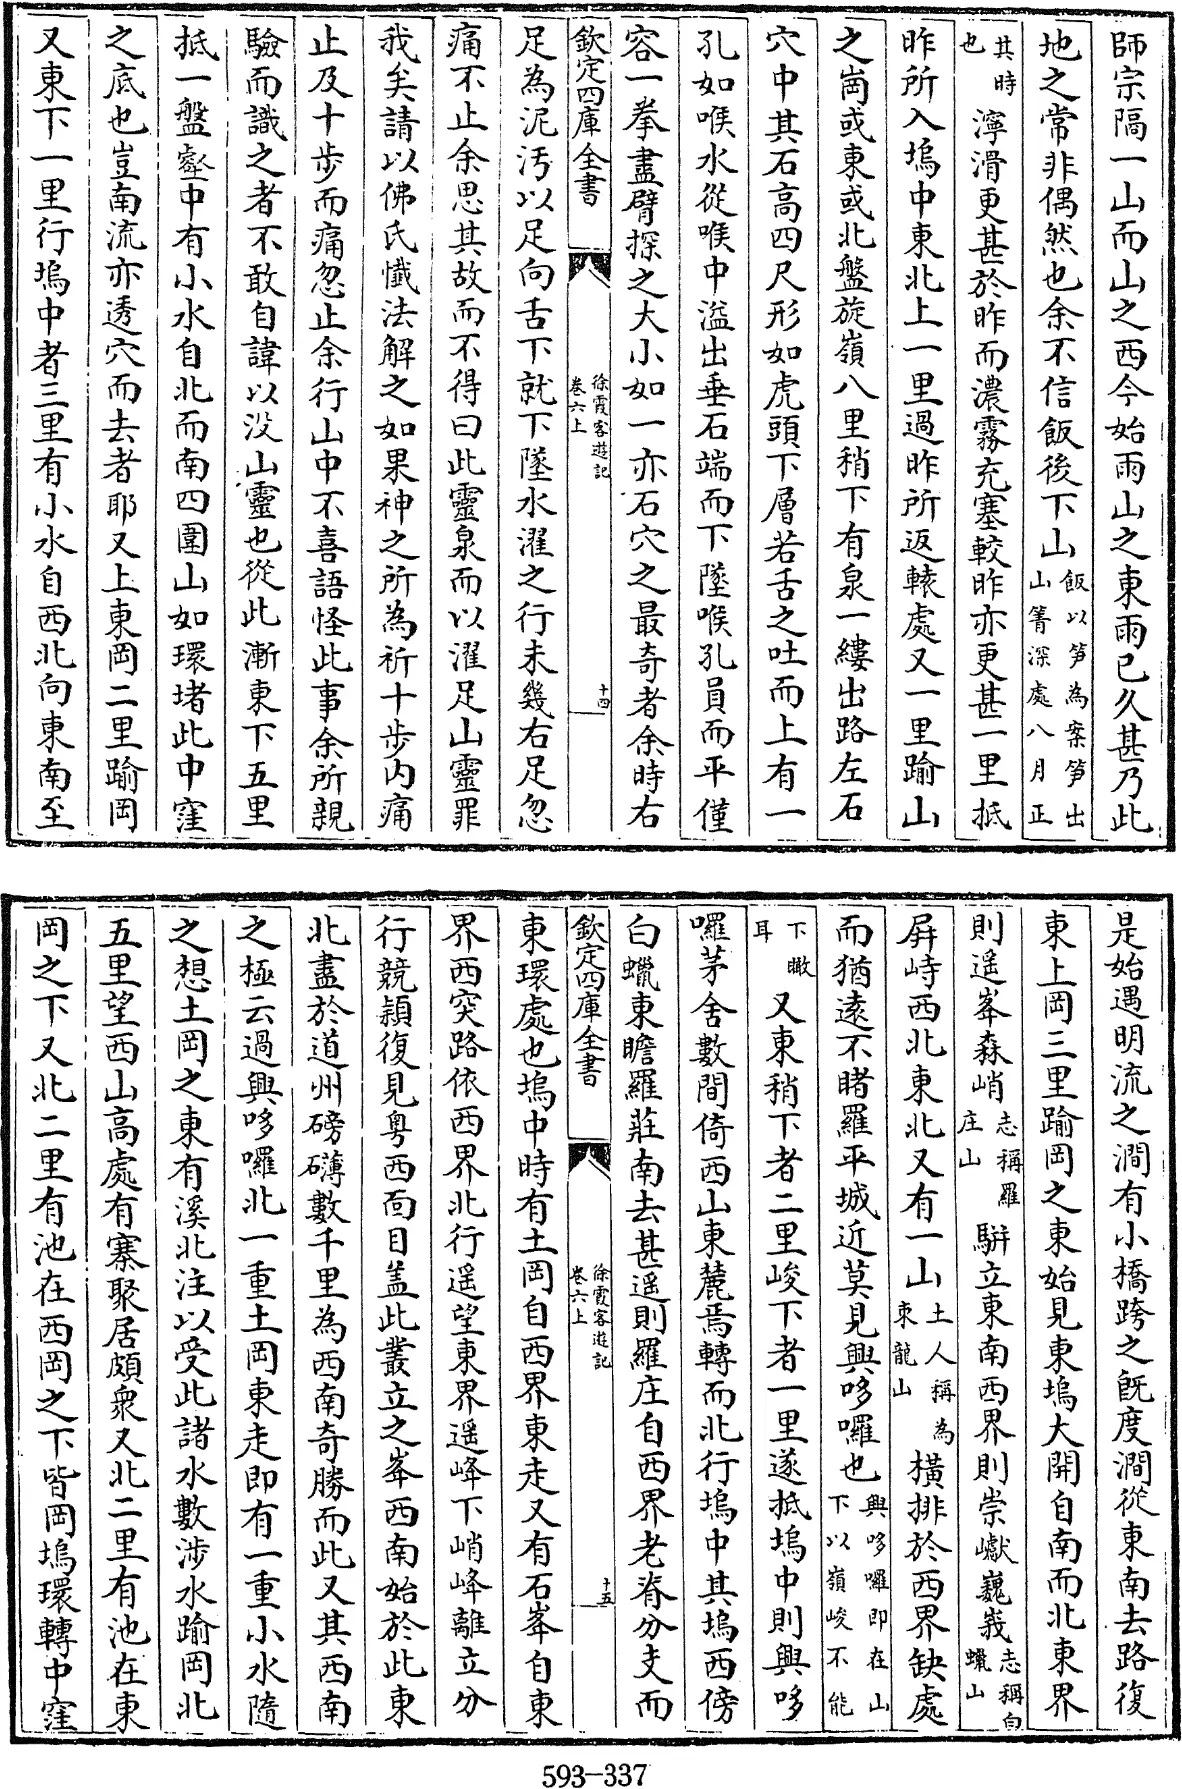 師宗隔一山而山之西今始雨山之東雨已久甚乃此
地之常非偶然也余不信飯後下山飯以笋為案笋出山箐深處八月正
其時也濘滑更甚於昨而濃霧充塞較昨亦更甚一里抵
昨所入塢中東北上一里過昨所返轅處又一里踰山
之崗或東或北盤旋嶺八里稍下有泉一縷出路左石
穴中其石高四尺形如虎頭下層若舌之吐而上有一
孔如喉水從喉中溢出垂石端而下墜喉孔員而平僅
容一拳盡臂探之大小如一亦石穴之最奇者余時右
欽定四庫全書
徐霞客遊記
卷六上
十四
足為泥汚以足向舌下就下墜水濯之行未幾右足忽
痛不止余思其故而不得曰此靈泉而以濯足山靈罪
我矣請以佛氏懺法解之如果神之所為祈十步内痛
止及十步而痛忽止余行山中不喜語怪此事余所親
驗而識之者不敢自諱以没山靈也從此漸東下五里
抵一盤壑中有小水自北而南四圍山如環堵此中窪
之底也豈南流亦透穴而去者耶又上東岡二里踰岡
又東下一里行塢中者三里有小水自西北向東南至
是始遇明流之澗有小橋跨之既度澗從東南去路復
東上岡三里踰岡之東始見東塢大開自南而北東界
則遥峯森峭志稱羅庄山駢立東南西界則崇巘巍峩志稱白蠟山
屏峙西北東北又有一山土人稱為朿龍山橫排於西界缺處
而猶遠不睹羅平城近莫見興哆囉也興哆囉即在山下以嶺峻不能
下瞰耳又東稍下者二里峻下者一里遂抵塢中則興哆
囉茅舍數間倚西山東麓焉轉而北行塢中其塢西傍
白蠟東瞻羅莊南去甚遥則羅庄自西界老脊分支而
欽定四庫全書
徐霞客遊記
卷六上
十五
東環處也塢中時有土岡自西界東走又有石峯自東
界西突路依西界北行遥望東界遥峰下峭峰離立分
行競穎復見粤西面目盖此叢立之峯西南始於此東
北盡於道州磅礴數千里為西南奇勝而此又其西南
之極云過興哆囉北一重土岡東走即有一重小水隨
之想土岡之東有溪北注以受此諸水數涉水踰岡北
五里望西山高處有寨聚居頗衆又北二里有池在東
岡之下又北二里有池在西岡之下皆岡塢環轉中窪
593-337